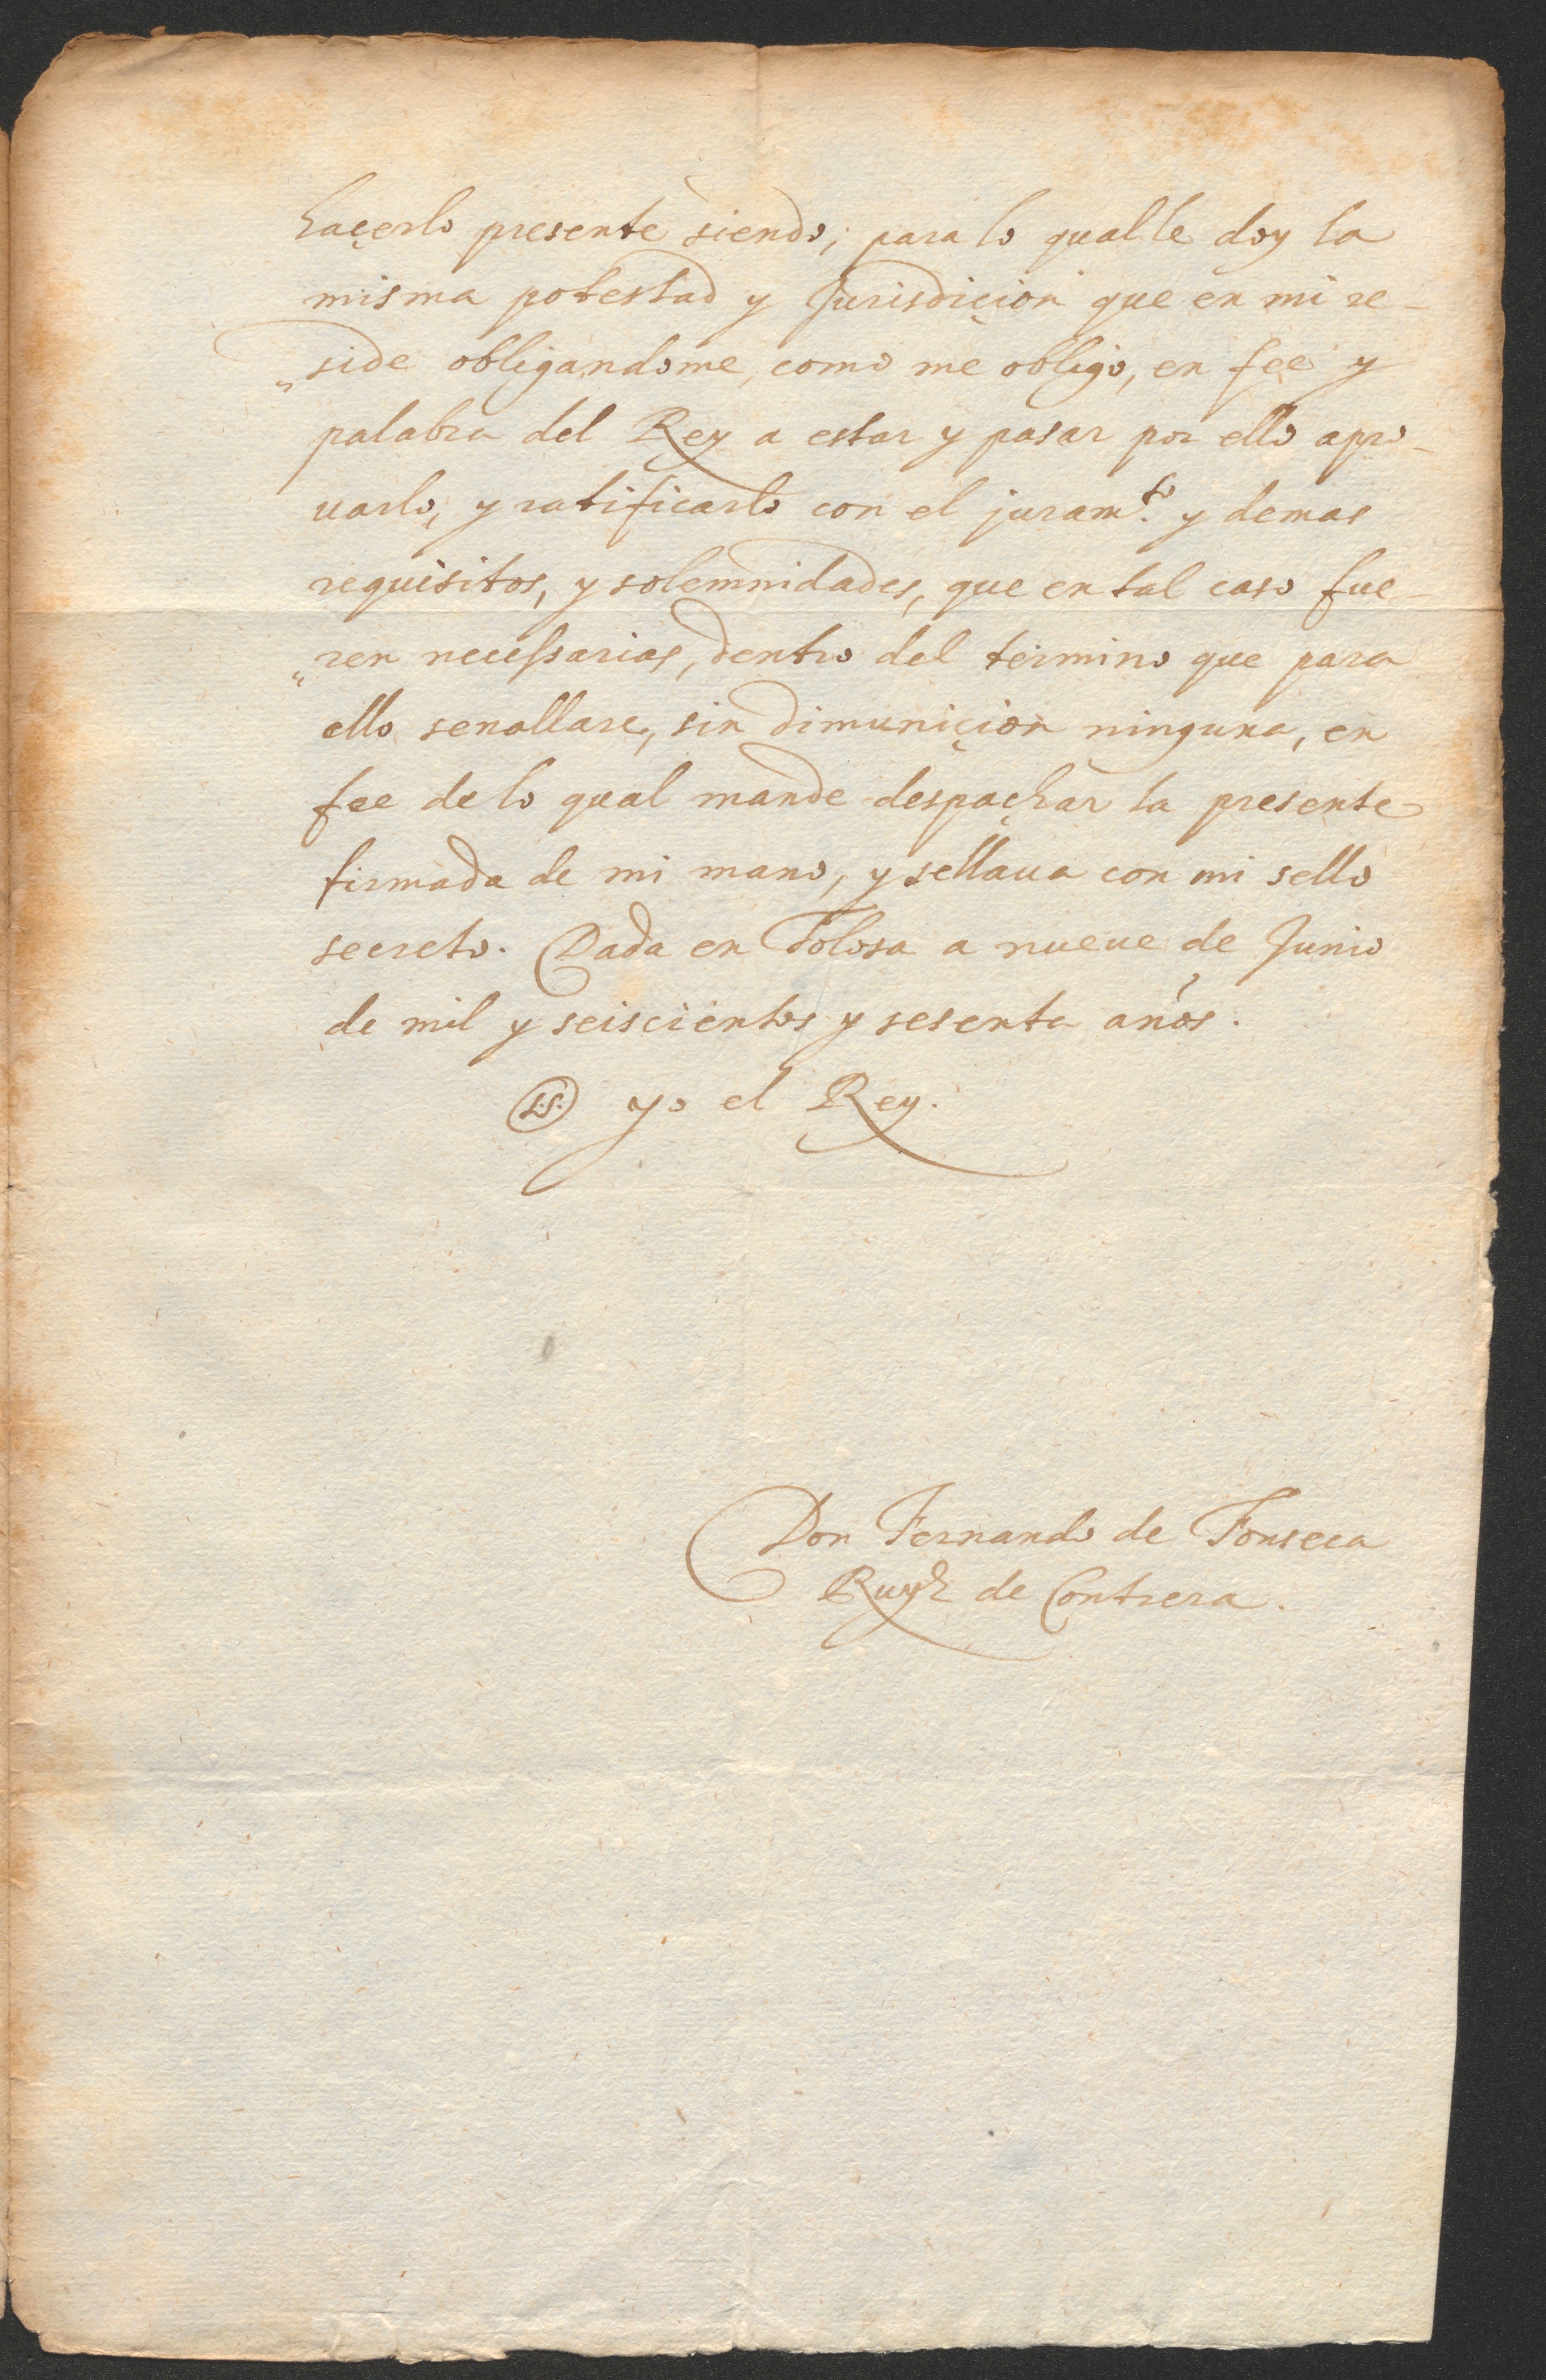 haçerlo presente siendo; para lo qual le doy la
misma potestad y Jurisdiçion que en mi re-
"side obligandome, como me obligo, en fee y
palabra del Rey a estar y pasar por ello apro-
uarlo, y ratificarlo con el juram.to y demas
requisitos, y solemnidades, que en tal caso fue-
"ren necessarias, dentro del termino que para
ello senallare, sin dimuniçion ninguna, en
fee de lo qual mande despaçhar la presente
firmada de mi mano, y sellaua con mi sello
secreto. Dada en Tolosa a nueue de Junio
de mil y seiscientos y sesenta años.
L.S. yo el Rey.
Don Fernando de Fonseca
Ruyz de Contrera.